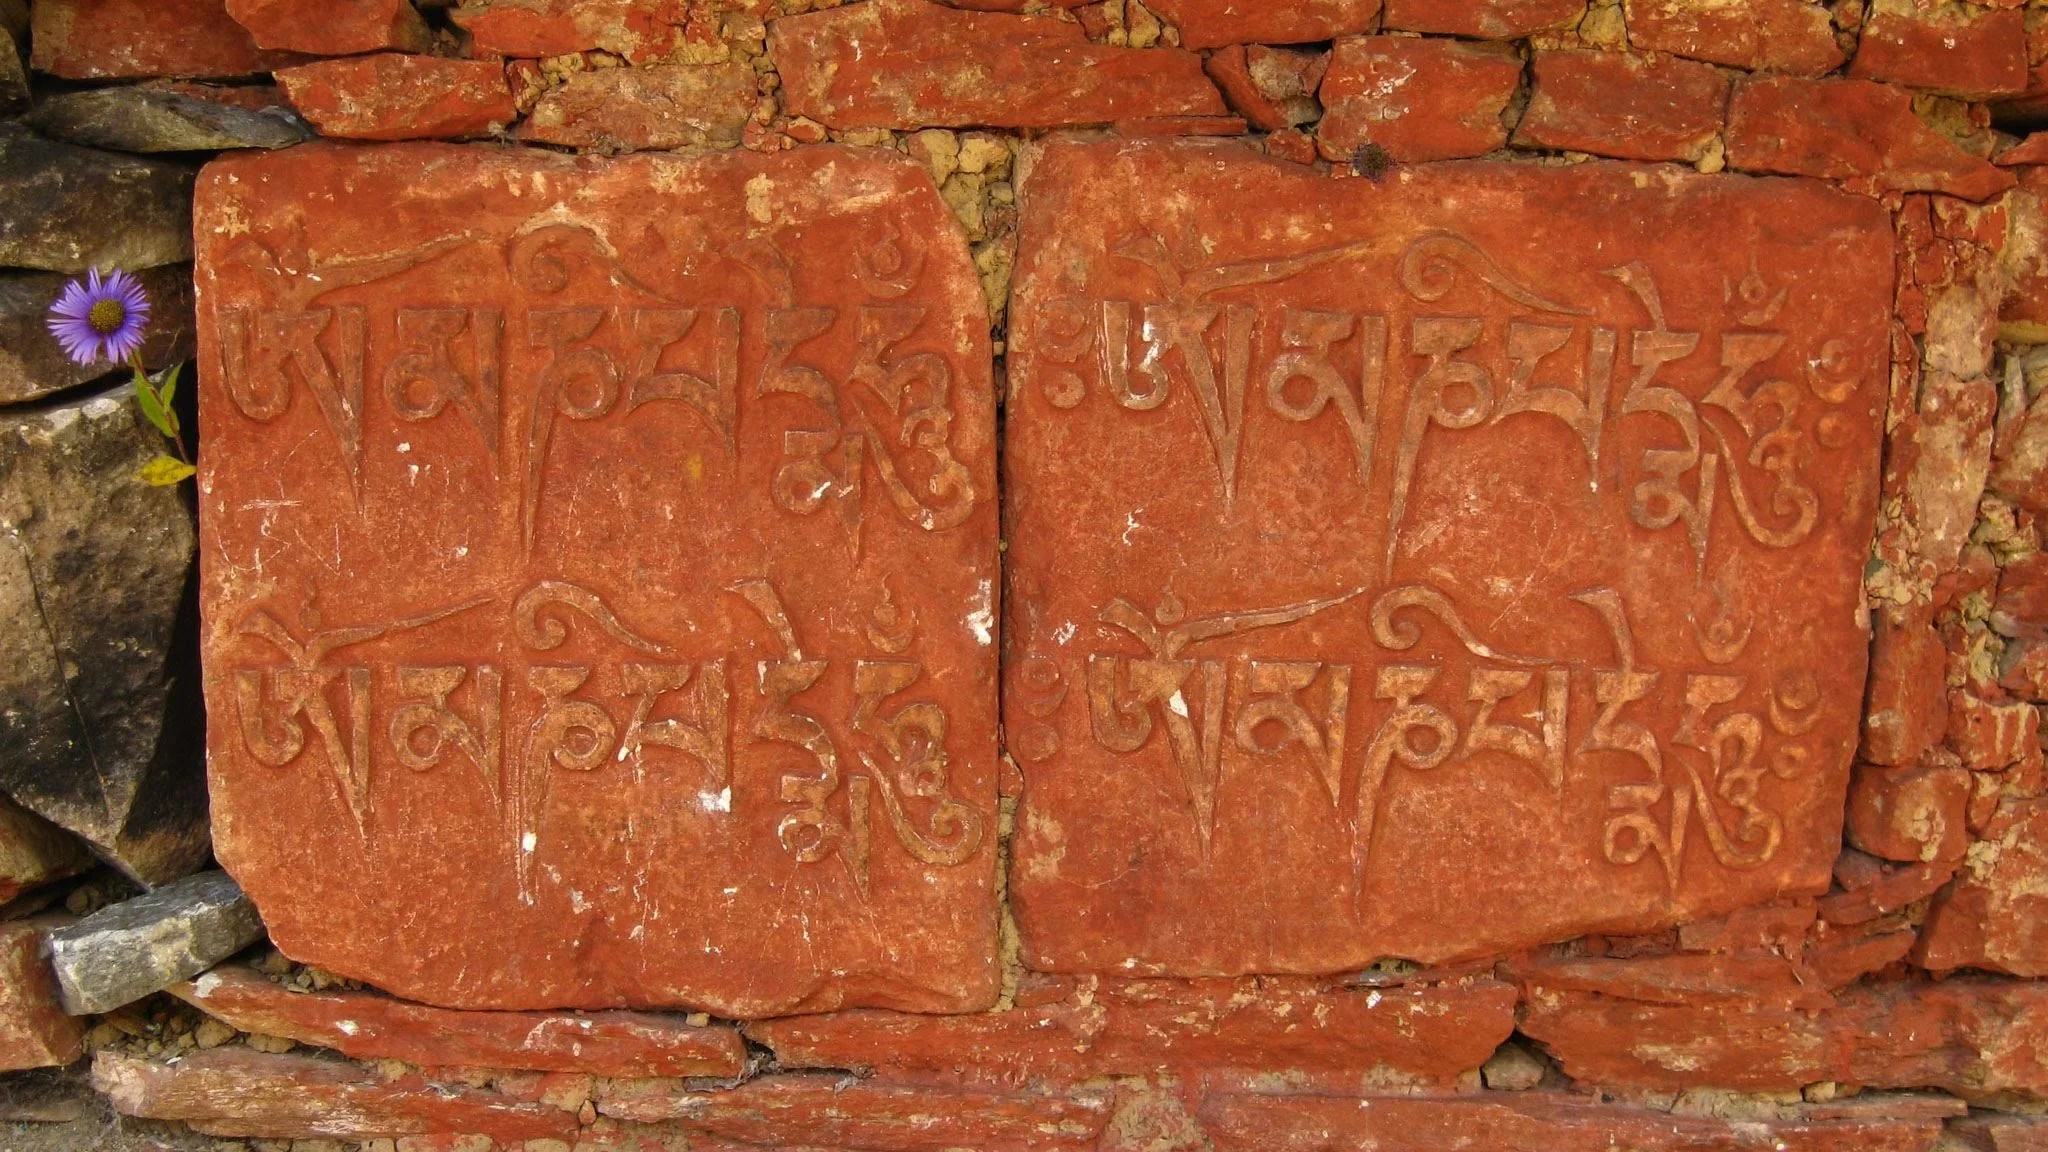 ཨོཾམཎིཔདྨེཧཱུྃ
ཨོཾམཎིཔདྨེཧཱུྃ
༔ཨོཾམཎིཔདྨེཧཱུྃ༔
༔ཨོཾམཎིཔདྨེཧཱུྃ༔